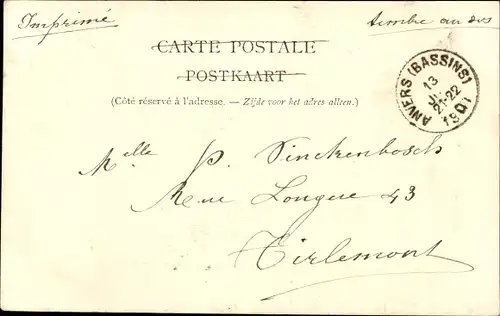 Imprimé
timbre au dos
CARTE POSTALE
POSTKAART
(Côté réservé à l'adresse. — Zijde voor het adres alleen.)
ANVERS (BASSINS)
13
21-22
1901
Melle P. Vinckenbosch
Rue Longue 43
Tirlemont